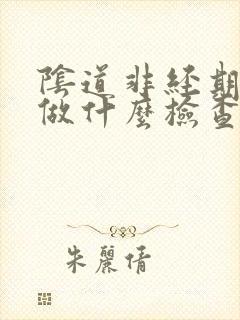 陰道非經期
做什麼檢查
朱麗倩